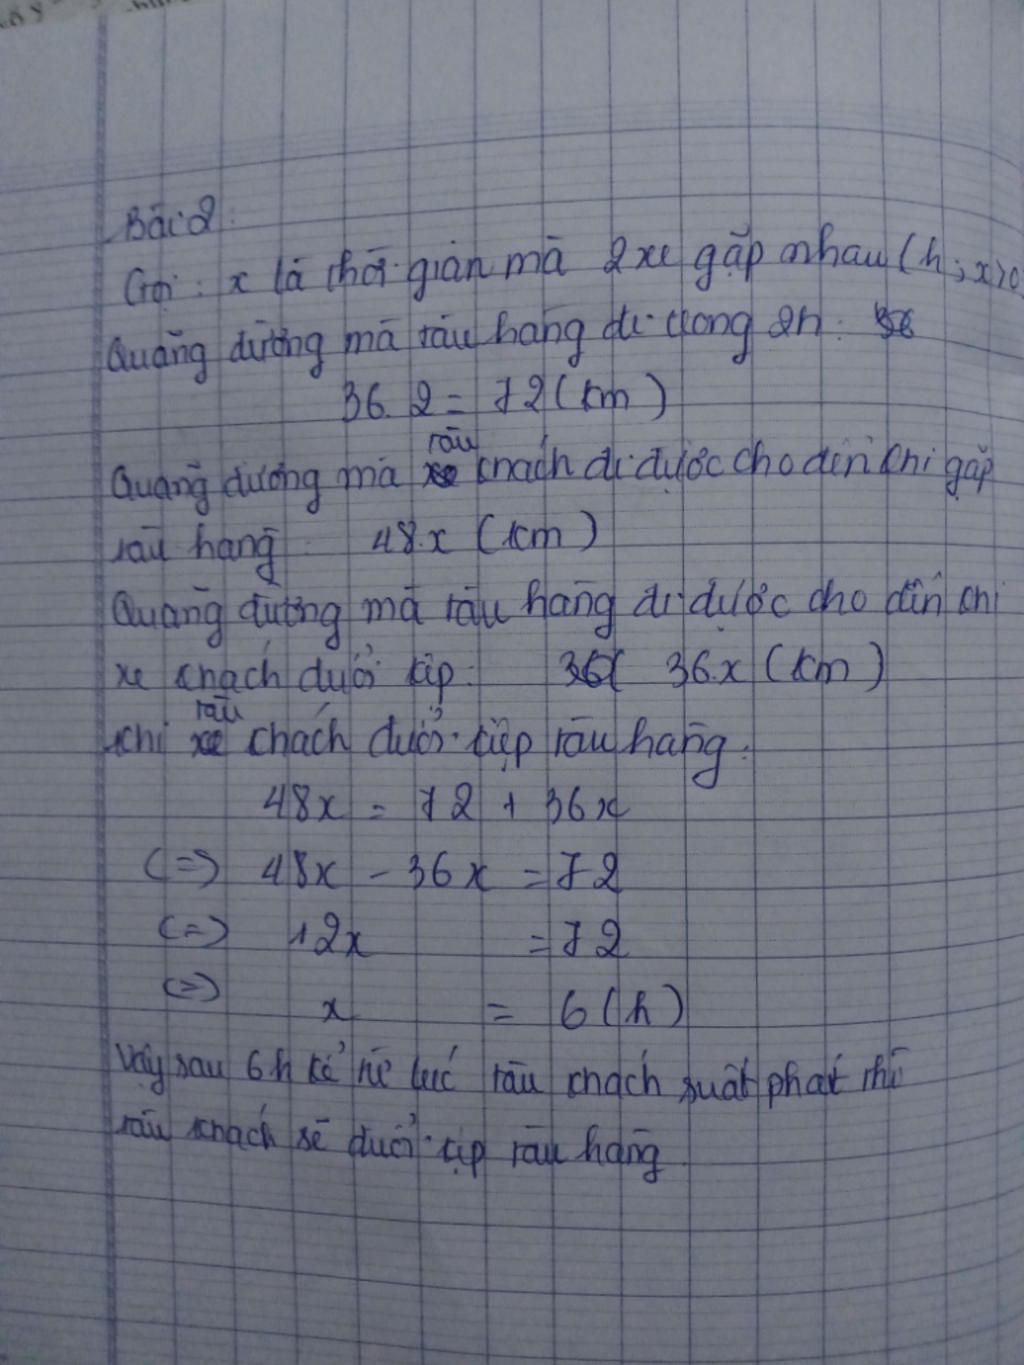 Bài 2:
Gọi: x là thời gian mà 2 xe gặp nhau (h; x>0
Quãng đường mà tàu hàng đi trong 2h:
36.2 = 72 (km)
Quãng đường mà tàu khách đi được cho đến khi gặp
tàu hàng: 48.x (km)
Quãng đường mà tàu hàng đi được cho đến khi
xe khách đuổi kịp: 36.x (km)
Khi tàu khách đuổi kịp tàu hàng:
48x = 72 + 36x
(=) 48x - 36x = 72
(=) 12x = 72
(=) x = 6 (h)
Vậy sau 6h kể từ lúc tàu khách suất phát thì
tàu khách sẽ đuổi kịp tàu hàng